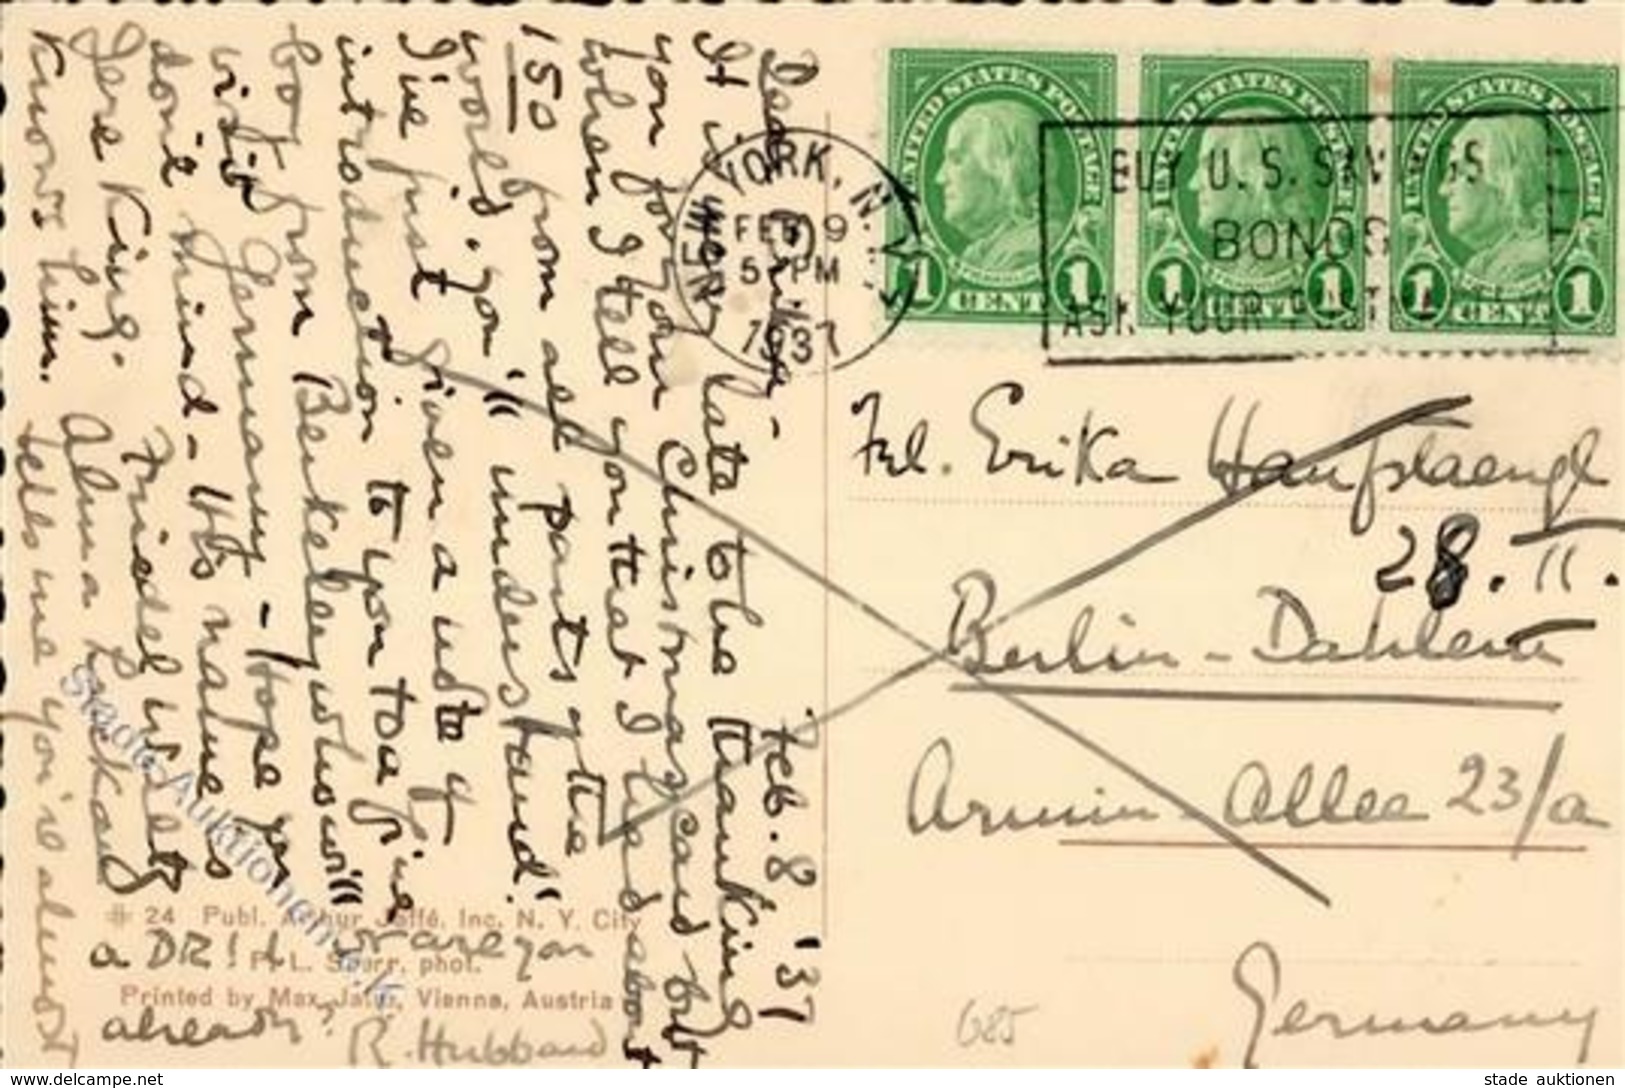 Feb. 8 '37
Dear Erika -
It is late to be thanking
you for your Christmas card but
when I tell you that I had about
150 from all parts of the
world. you "understand"
I've just given a note of
introduction to you to a fine
boy from Berkeley who will
visit Germany - Hope you
don't mind - His name is
Jere King. Friedel Walet
Knows him. Alma
tells me you're almost
a DR! Or are you
already?
R. Hubbard
# 24 Publ. Arthur Jaffé, Inc. N. Y. City
P. L. Sperr, phot.
Printed by Max Jaffé, Vienna, Austria
NEW YORK, N.Y.
FEB 9
5 PM
1937
BUY U. S. SAVINGS
BONDS
ASK YOUR POSTMASTER
UNITED STATES POSTAGE
FRANKLIN
1 CENT 1
UNITED STATES POSTAGE
FRANKLIN
1 CENT 1
UNITED STATES POSTAGE
FRANKLIN
1 CENT 1
Frl. Erika Hanfstaengl
28. II.
Berlin - Dahlem
Armin - Allee 23/a
Germany
685
Stade Auktionen
https://www.delcampe.net
stade auktionen